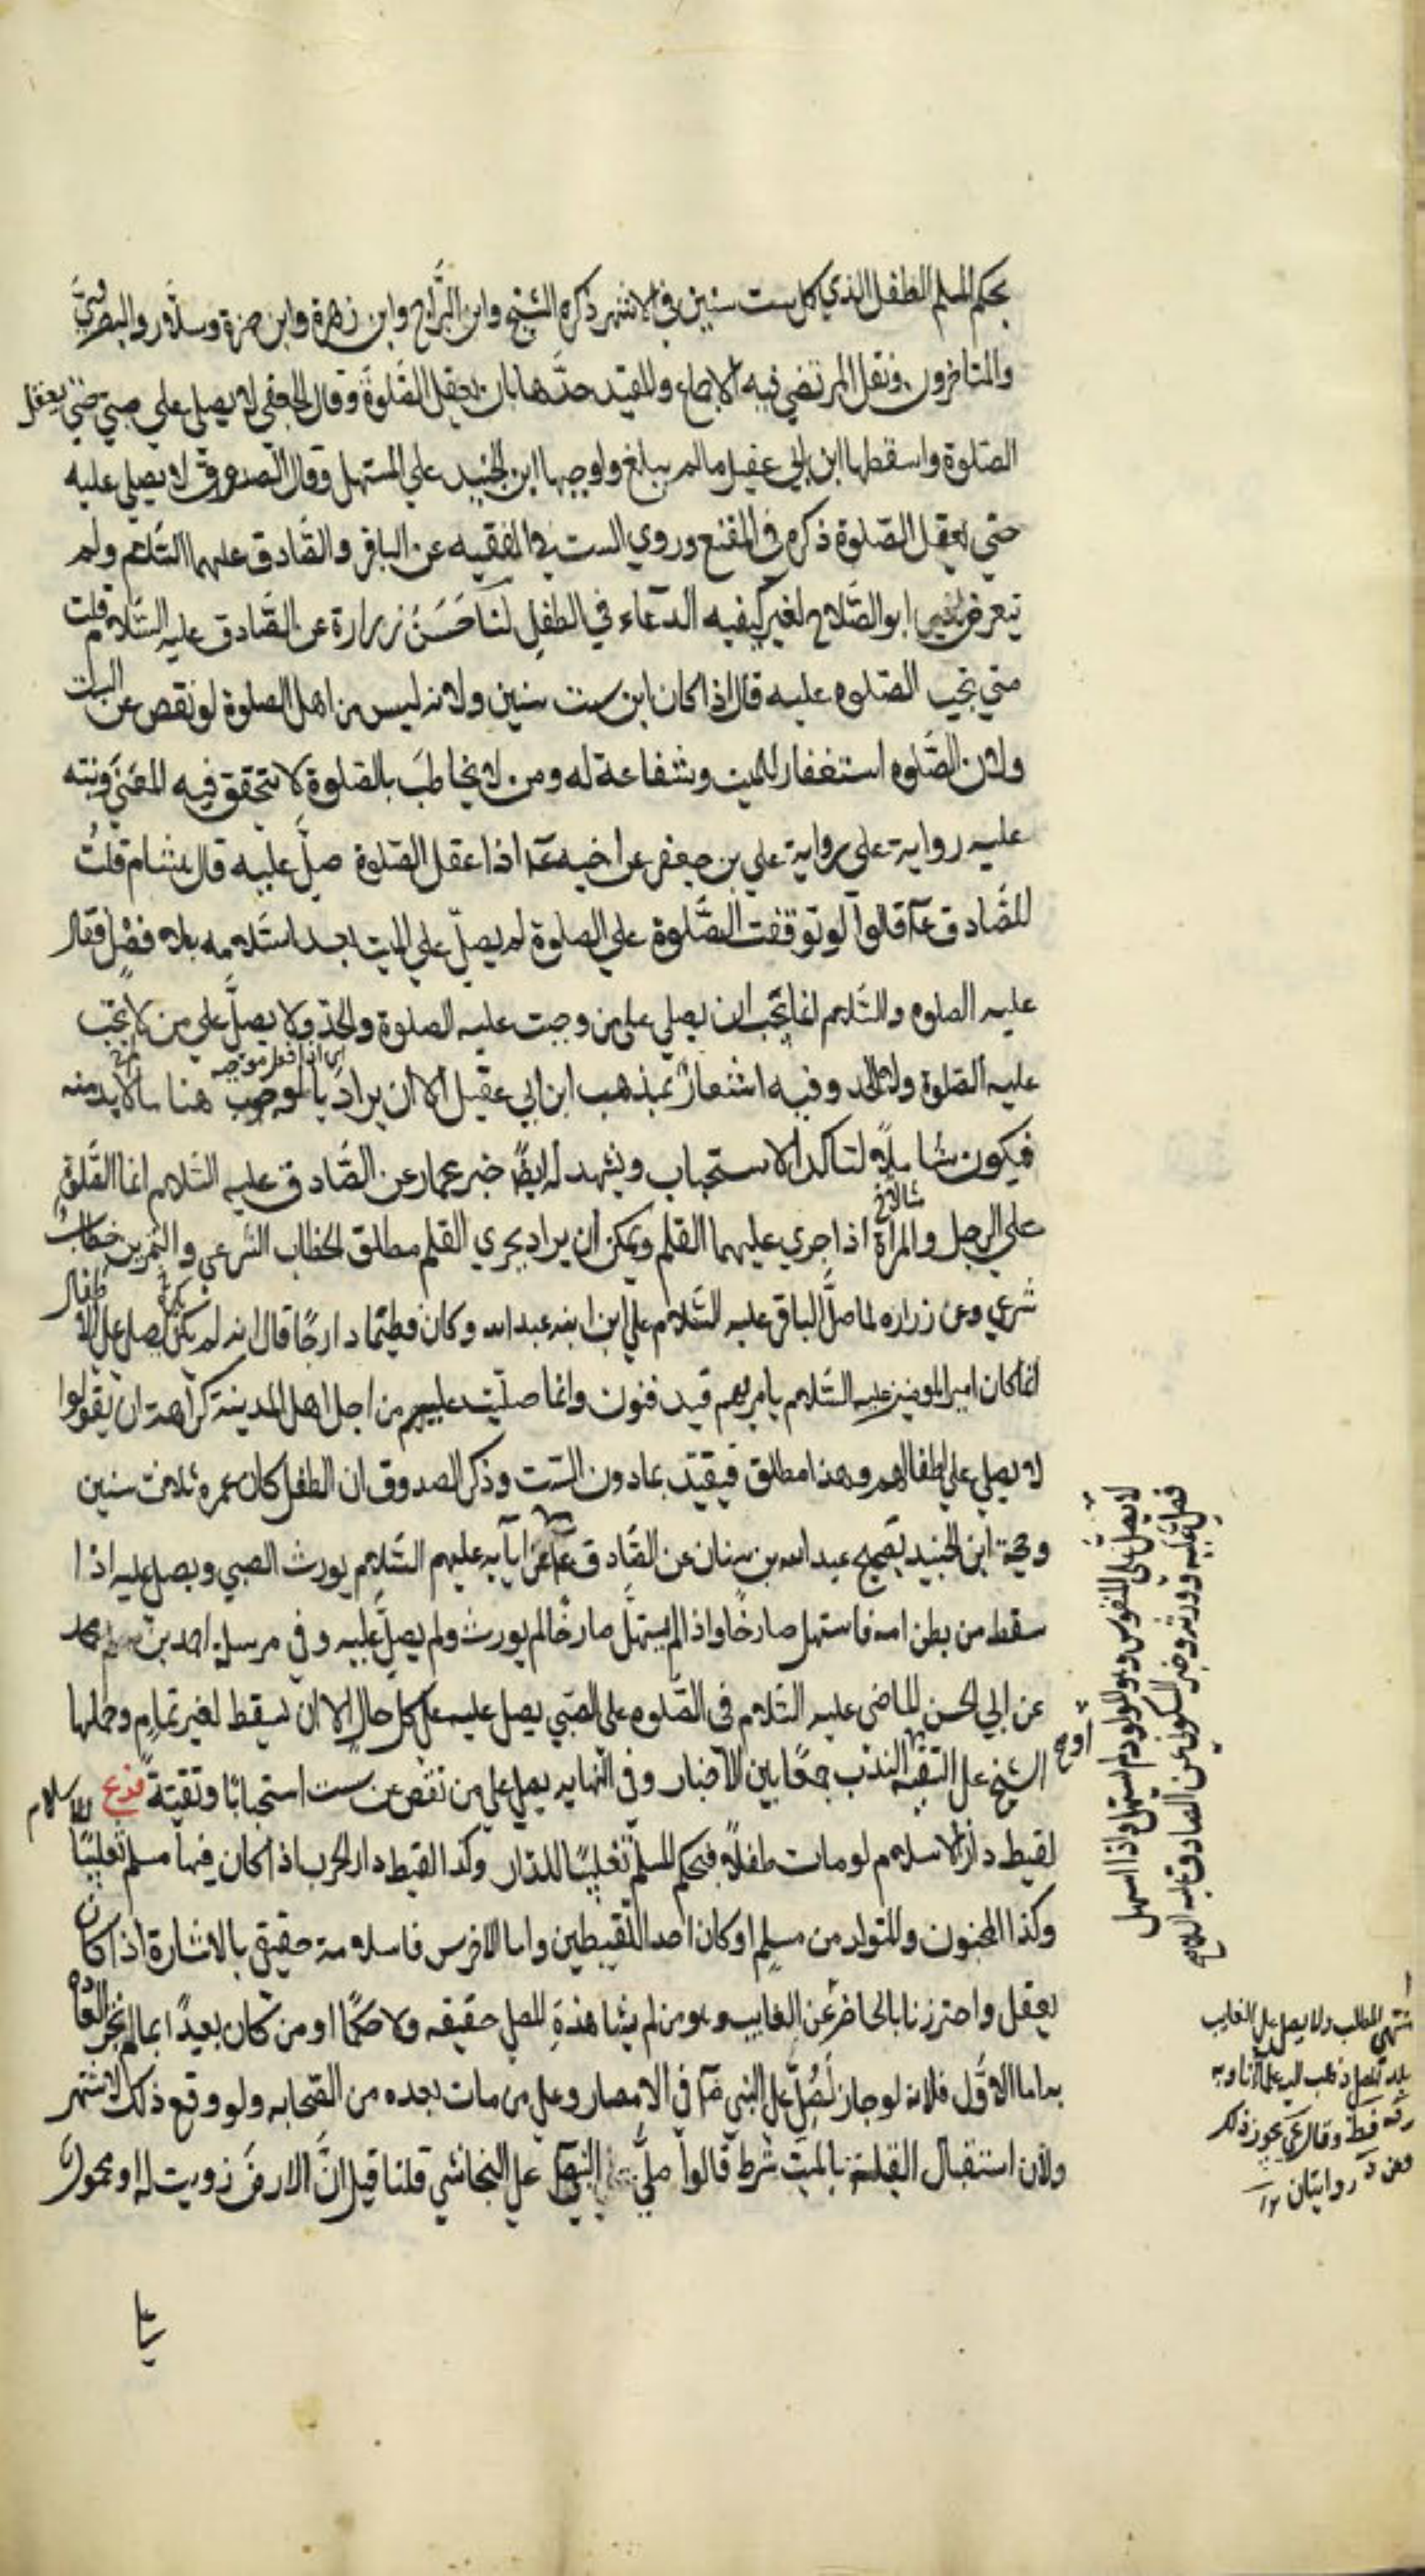 بحكم المسلم الطفل الذي كمل ست سنين في الاشهر ذكره الشيخ وابن البراج وابن زهرة وابن حمزة وسلار والبصروي
والمتاخرون ونقل المرتضي فيه الاجماع والمفيد حدها بان يعقل الصلوة وقال الجعفي لا يصلي علي صبي حتي يعقل
الصلوة واسقطها ابن ابي عقيل مالم يبلغ واوجبها ابن الجنيد علي المستهل وقال الصدوق لا يصلي عليه
حتي يعقل الصلوة ذكره في المقنع وروي الست في الفقيه عن الباقر والصادق عليهما السلام ولم
يتعرض ابو الصلاح لغير كيفيه الدعاء في الطفل لنا حَسَنُ زرارة عن الصادق عليه السلام قلت
متي تجب الصلوه عليه قال اذا كان ابن ست سنين ولانه ليس من اهل الصلوة لو نقص عن الست
ولان الصلوه استغفار للميت وشفاعة له ومن لا يخاطب بالصلوة لا يتحقق فيه المعني ونبّه
عليه رواية علي رواية علي بن جعفر عن اخيه عم اذا عقل الصلوة صلّ عليه قال هشام قلتُ
للصادق عم قالوا لو توقفت الصلوة علي الصلوة لم يصلّ علي الميت بعد اسلامه بلا فصل فقال
عليه الصلوه والسلام انما يجب ان يصلي علي من وجبت عليه الصلوة والحد ولا يصلّ علي من لا تجب
عليه الصلوة ولا الحد وفيه اشعار بمذهب ابن ابي عقيل الا ان يراد بالوجوب هنا ما لابد منه
فيكون شاملا لتاكد الاستحباب ويشهد له ايضا خبر عمار عن الصادق عليه السلام انما الصلوة
علي الرجل والمراة اذا جري عليهما القلم ويمكن ان يراد بجري القلم مطلق الخطاب الشرعي والتمرين خطاب
شرعي وعن زراره لما صلّ الباقر عليه السلام علي ابن ابنه عبد الله وكان فطيمًا دارجًا قال انه لم يكن يصلي علي الاطفال
انما كان امير المومنين عليه السلام يامر بهم فيدفنون وانما صليت عليهم من اجل اهل المدينة كراهة ان يقولوا
لا يصلي علي اطفالهم وهذا مطلق فيقيّد بما دون الست وذكر الصدوق ان الطفل كان عمره ثلاث سنين
وحجة ابن الجنيد بصحيح عبد الله بن سنان عن الصادق عم عن ابآيه عليهم السلام يورث الصبي ويصلي عليه اذا
سقط من بطن امه فاستهل صارخًا واذا لم يستهلّ صارخًا لم يورث ولم يصلّ عليه وفي مرسل احمد بن محمد
عن ابي الحسن الماضي عليه السلام في الصلوه علي الصبي يصلي عليه علي كل حال الا ان يسقط لغير تمام وحملها
الشيخ علي التقيه او الندب جمعًا بين الاخبار وفي النهايه يصلي علي من نقص عن ست استحبابًا وتقيّة فرع الاسلام
لقيط دار الاسلام لو مات طفلًا فبحكم المسلم تغليبًا للدار وكذا لقيط دار الحرب اذا كان فيها مسلم تغليبًا
وكذا المجنون والمتولد من مسلم او كان احد اللقيطين واما الاخرس فاسلامه حقيقي بالاشارة اذا كان
يعقل واحترزنا بالحاضر عن الغايب وهو من لم يشاهده المصلي حقيقه ولا حكمًا او من كان بعيدًا بما لم تجر العاده
به اما الاول فلانه لو جاز لصُلّي علي النبي صم في الامصار وعلي من مات بعده من الصحابه ولو وقع ذلك لاشتهر
ولان استقبال القبلة بالميت شرط قالوا صلّي النبي صم علي النجاشي قلنا قيل انّ الارض زويت له او محمول
لا يصل علي المنفوس وهو المولود لم يستهل واذا استهل
فصل عليه وورثه وخبر السكوني عن الصادق عليه السلام
منتهي المطلب ولا يصلي علي الغايب
روايتان ١٢